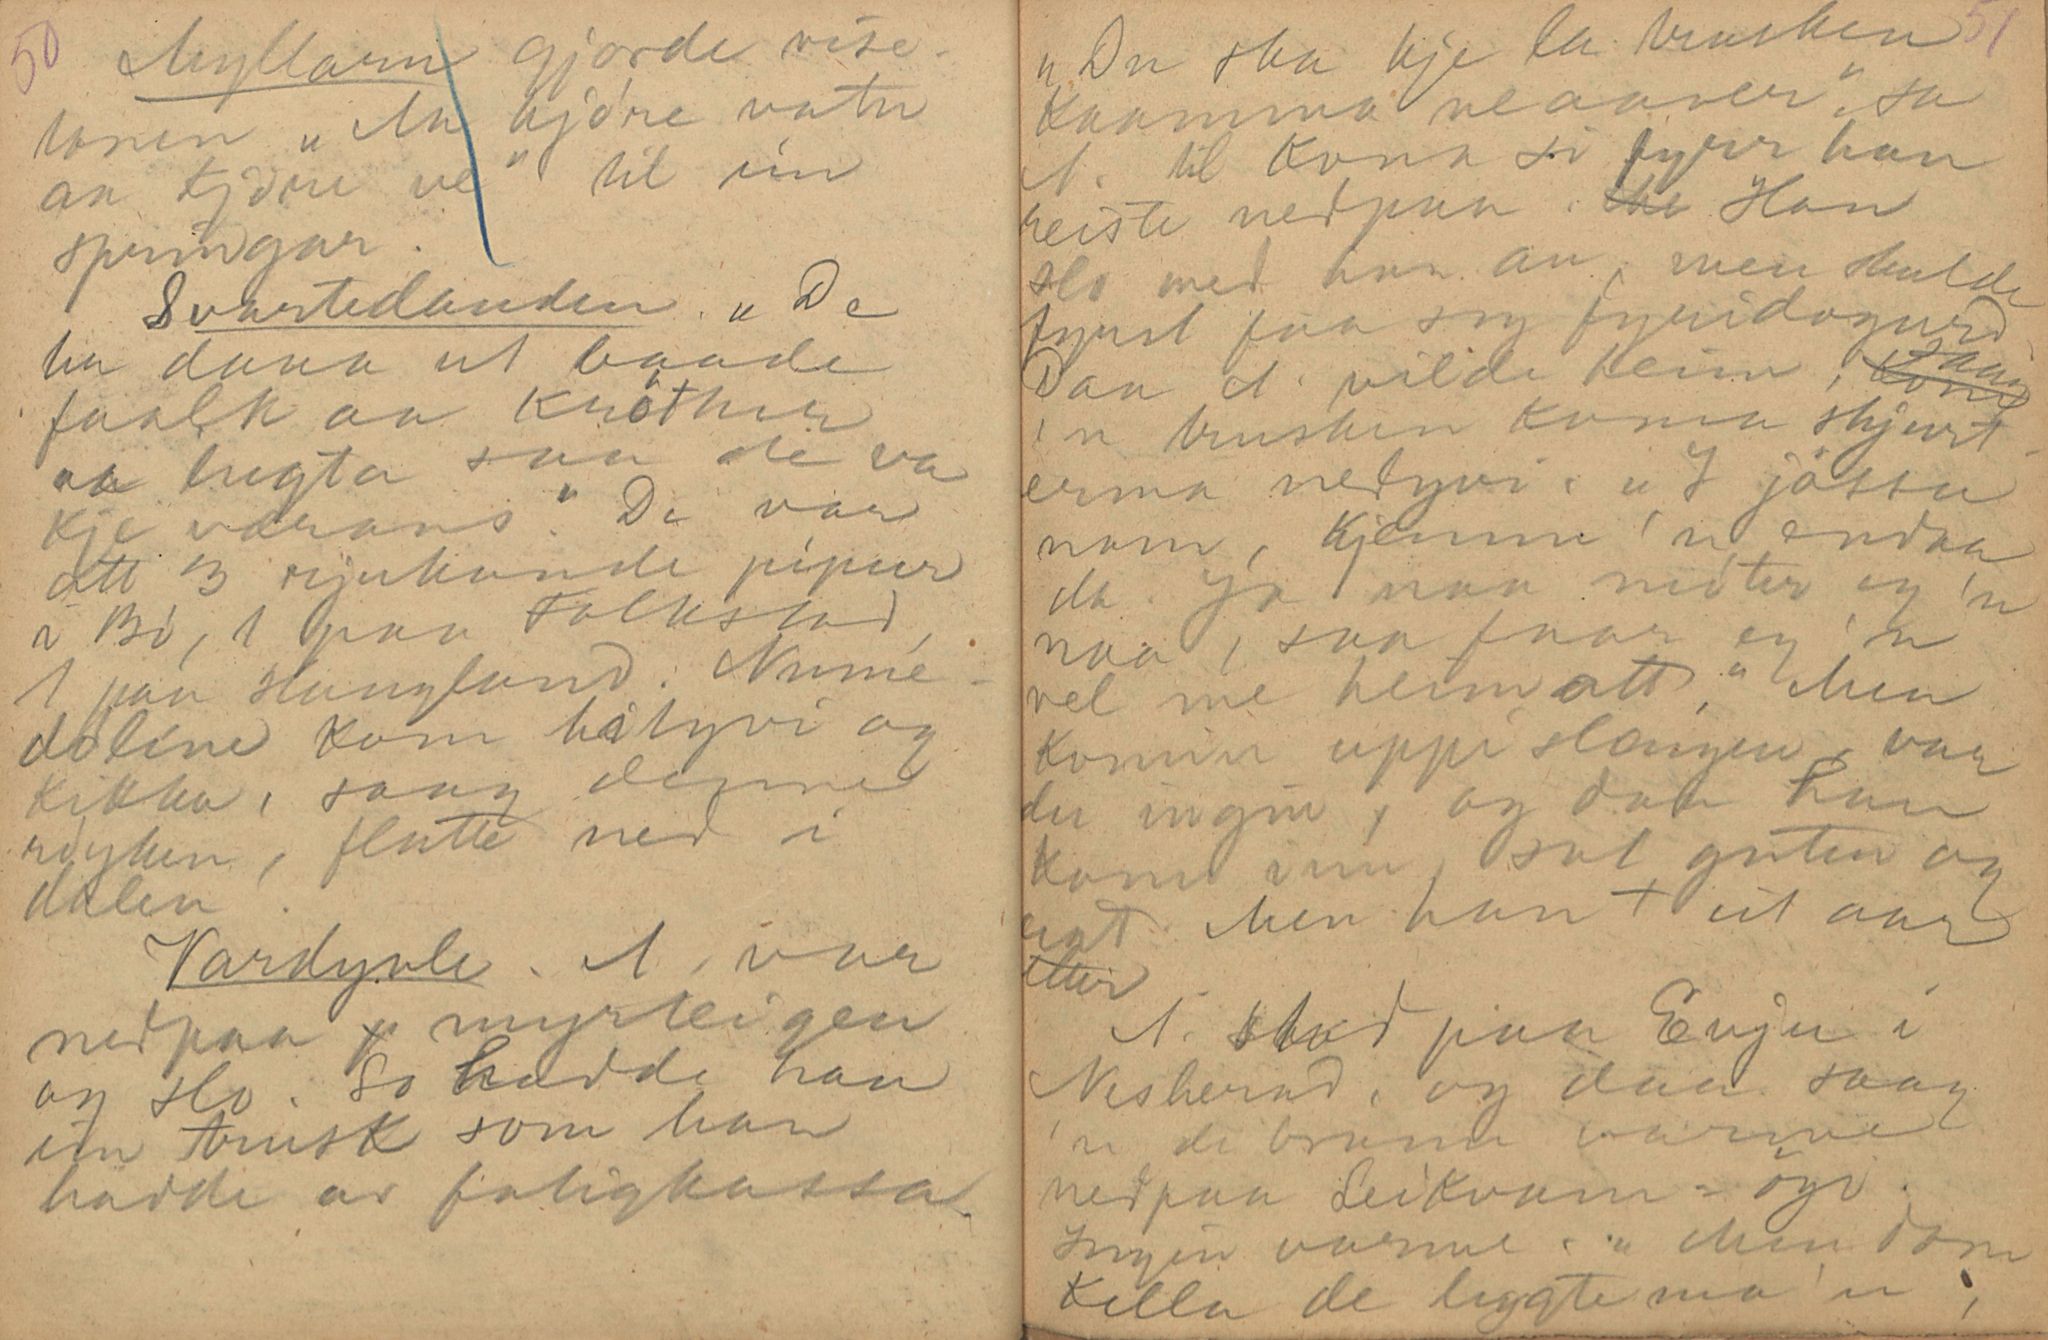 50
Myllarn gjorde vise-
tonen „Aa kjöre vatn
aa kjöre ve" til ein
springar.
Svartedauden. „De
ha daua ut baade
faalk aa kröther
aa bygta saa de va
kje værans". De var
att 3 rjukande pipur
i Bö, 1 paa Folkstad,
1 paa Haugland. Nume-
döline kom hityvi og
kikka, saag denne
röyken, flutte ned i
dalen.
Vardyvle. A. var
nedpaa myrteigen
og slo. So hadde han
ein trusk som han
hadde av fatigkassa.
51
„Du ska kje la trusken
kaamma neaaver", sa
A. til kona si fyrr han
reiste nedpaa. Han
slo med han au, men skulde
fyrst faa seg fyridogurd.
Daa A. vilde heim, saag
'n trusken koma skjurt-
erma nedyvi. „I jössu
nam, kjemme 'n endaa
da. Ja naa möter eg 'n
naa, saa faar eg 'n
vel me heimatt," Men
komin uppi slaagen, var
de ingin, og daa han
kom inn, sat guten og
aat. Men han † eit aar
etter
A. stod paa Evju i
Nesherad, og daa saag
'n de brann varme
nedpaa Leikvam-öyi.
Ingin varme. „Men dam
kella de lygtema'n,